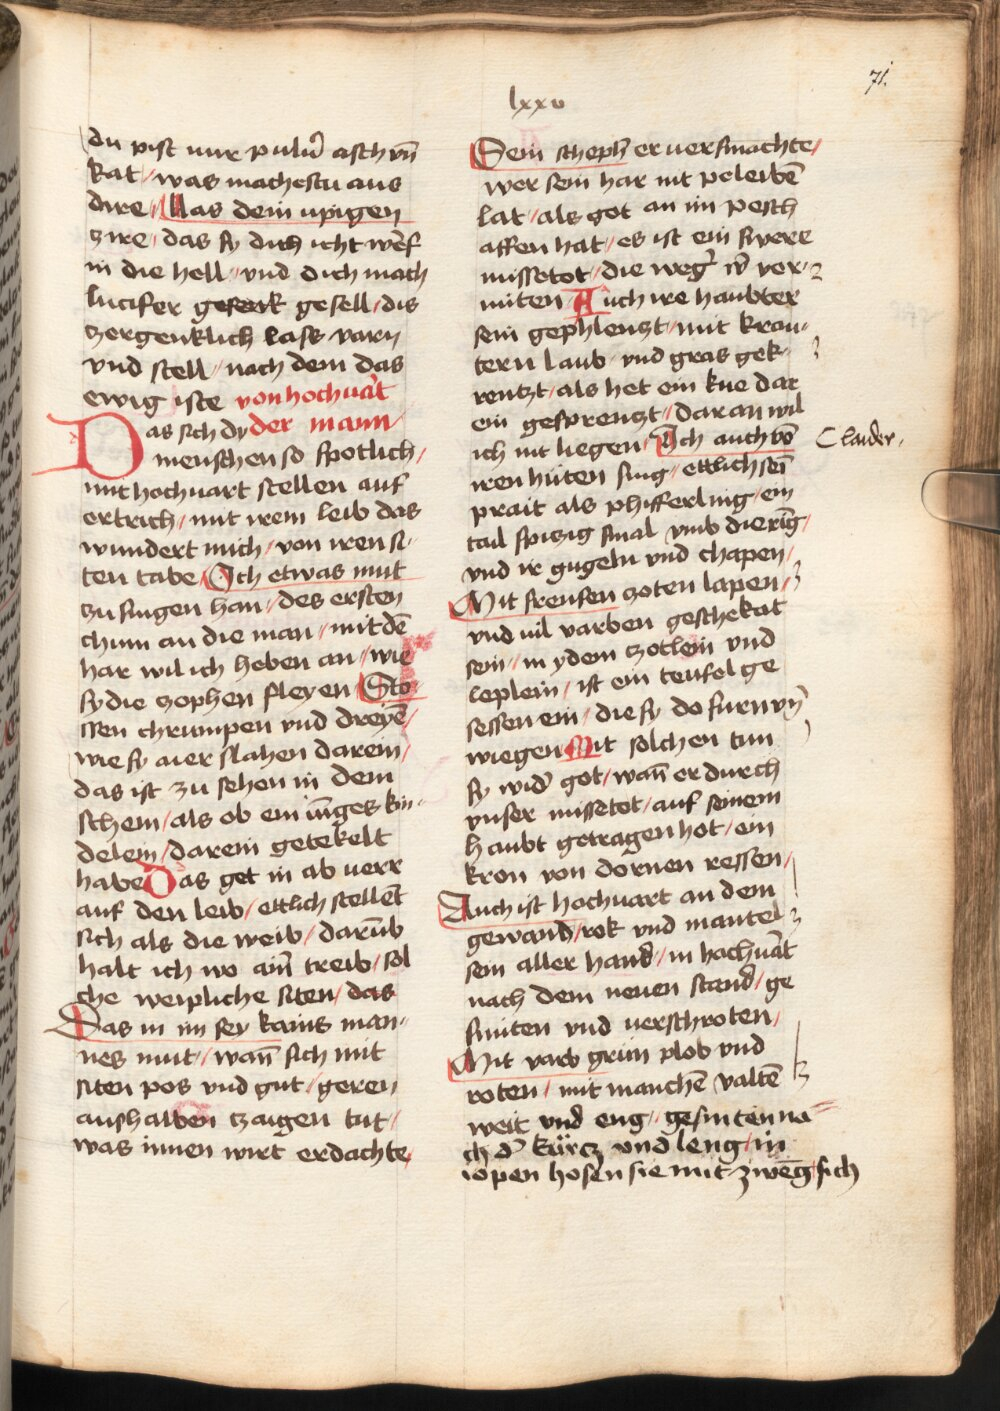 71.
lxxv
du pist nur puluͥ asch vn̄
kat / was machestu aus
dire / Las dein upigen
zire / das sy dich icht werf
in die hell / vnd dich mach
lucifer gesenk gesell / dis
zergenklich lass varn
vnd stell / nach dem das
ewig iste von hochuart
Das sich dy der mann /
menschen so spotlich /
mit hochuart stellen auf
ertrich / mit irem leib das
wundert mich / von iren si-
ten tabe / Ich etwas mut
zu singen han / des ersten
chum an die man / mit dē
har wil ich heben an / wie
sy die zophen fleyen / Sto
ssen chrumpen vnd dreyē /
wie sy aier slahen darein /
das ist zu sehen in dem
schein / als ob ein iūges kin-
delem / darein getekelt
habe Das get in ab verr
auf den leib / ettlich stellēt
sich als die weib / darūb
halt ich wo ain̄ treib / sol
che weipliche siten / das
Das in im sey kains man-
nes mut / wan̄ sich mit
siten pos vnd gut / geren
aushalben zaigen tut /
was innen wirt erdachte /
Sein scheph er versmachte /
wer sein har nit peleibē
lat / als got an im pesch
affen hat / es ist ein swere
missetot / die weḡ w̄ ver-
miten Auch ire haubter
sein gephlenzt / mit krau-
tern laub / vnd gras gek-
rentzt / als het ein kue dar
ein gesprentzt / daran wil
ich nit liegen / Ich auch vō
Clander.
iren hüten sing / ettlich sein̄
prait als phifferling / ein
tail spizig smal vmb die ring /
vnd ir gugeln vnd chapen /
Mit frensen zoten lapen /
vnd vil varben geschekat
sein / in ydem zotlein vnd
leplein / ist ein teufel ge
sessen ein / die sy do furn vn̄
wiegen Mit solchen tun
sy wid̄ got / wan̄ er durch
vnser missetot / auf seinem
haubt getragen hot / ein
kron von dornen ressen /
Auch ist hochuart an dem
gewand / rok vnd mantel
sein aller hand / in hochuāt
nach dem neuen stand / ge
sniten vnd verschroten /
Mit varb grün plob vnd
roten / mit manchē valtē
weit vnd eng / gesniten na-
ch d̄ kürcz vnd leng / in
iopen hosen sie mit zwēg sich